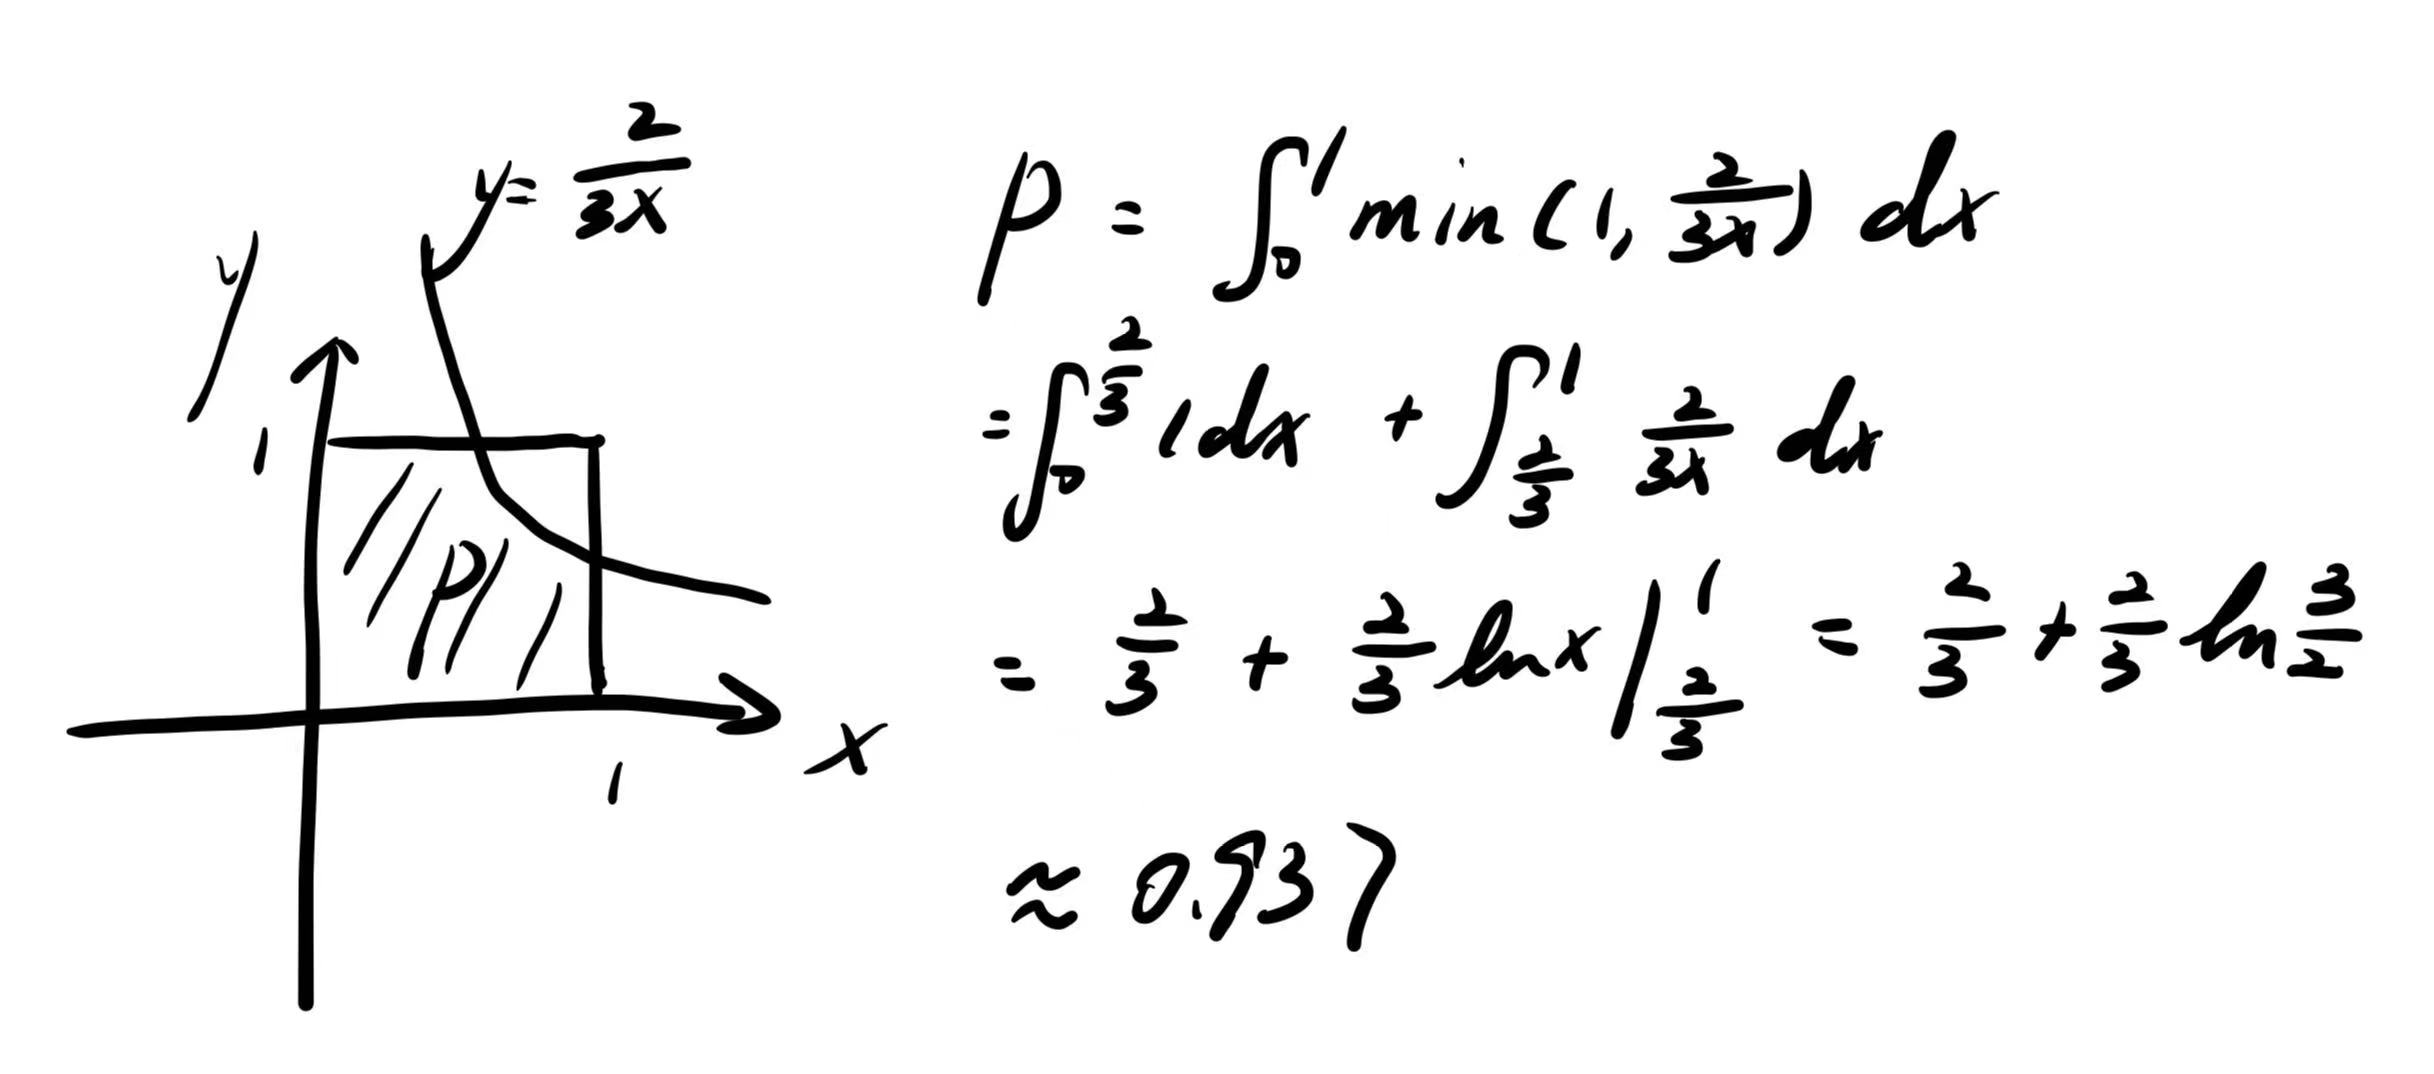 y = 2/(3x)
y
1
P
x
1
P = ∫_0^1 min(1, 2/(3x)) dx
= ∫_0^{2/3} 1 dx + ∫_{2/3}^1 2/(3x) dx
= 2/3 + 2/3 ln x |_{2/3}^1 = 2/3 + 2/3 ln 3/2
≈ 0.937